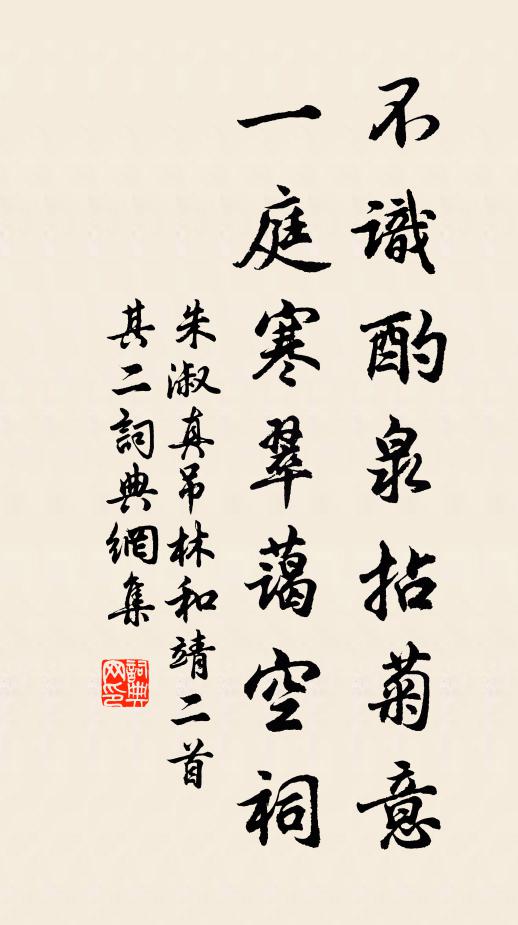 不識酌泉拈菊意
一庭寒翠藹空祠
朱淑真吊林和靖二首
其二詞典網集
詞典网印